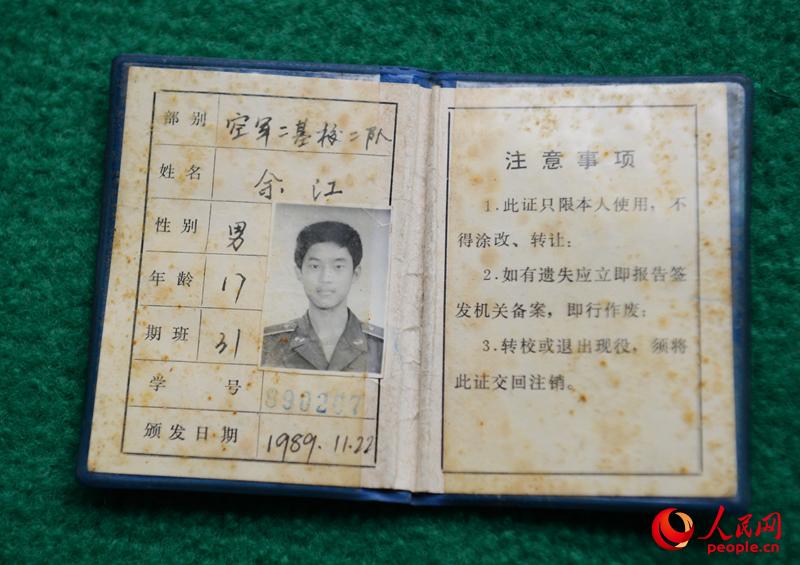 部别 空军二基校二队
姓名 余江
性别 男
年龄 17
期班 31
学号 890267
颁发日期 1989.11.22
注意事项
1.此证只限本人使用，不
得涂改、转让；
2.如有遗失应立即报告签
发机关备案，即行作废；
3.转校或退出现役，须将
此证交回注销。
人民网
people.cn